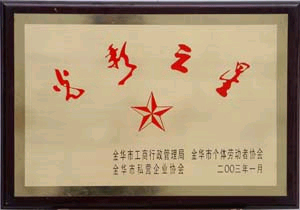 光彩之星
金华市工商行政管理局 金华市个体劳动者协会
金华市私营企业协会 二〇〇三年一月